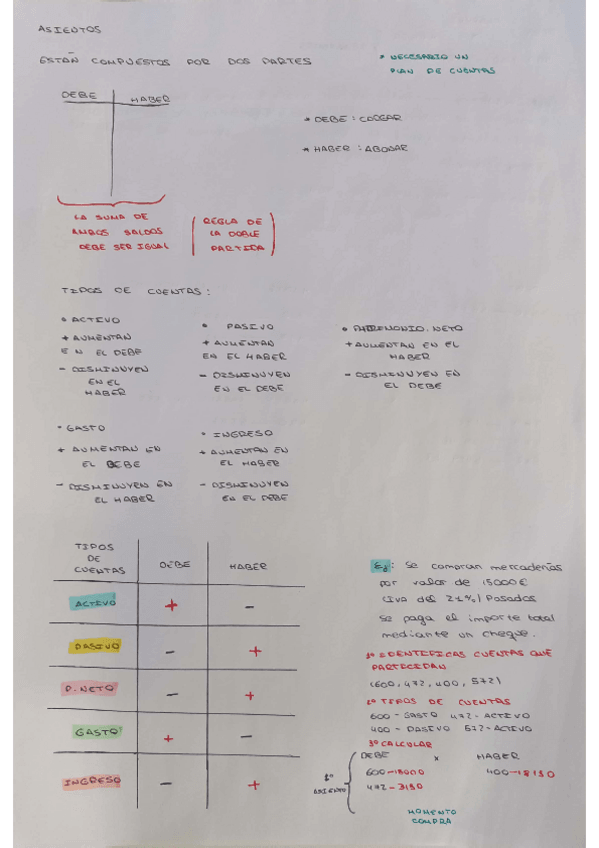 ASIENTOS
ESTÁN COMPUESTOS POR DOS PARTES
* NECESARIO UN
PLAN DE CUENTAS
DEBE HABER
* DEBE : CARGAR
* HABER : ABONAR
LA SUMA DE
AMBOS SALDOS
DEBE SER IGUAL
( REGLA DE
LA DOBLE
PARTIDA )
TIPOS DE CUENTAS :
• ACTIVO
+ AUMENTAN
EN EL DEBE
- DISMINUYEN
EN EL
HABER
• PASIVO
+ AUMENTAN
EN EL HABER
- DISMINUYEN
EN EL DEBE
• PATRIMONIO NETO
+ AUMENTAN EN EL
HABER
- DISMINUYEN EN
EL DEBE
• GASTO
+ AUMENTAN EN
EL DEBE
- DISMINUYEN EN
EL HABER
• INGRESO
+ AUMENTAN EN
EL HABER
- DISMINUYEN
EN EL DEBE
TIPOS
DE
CUENTAS
DEBE HABER
ACTIVO + -
PASIVO - +
P. NETO - +
GASTO + -
INGRESO - +
Ej: Se compran mercaderías
por valor de 15000€
(iva del 21%)
Se paga el importe total
mediante un cheque.
1º IDENTIFICAS CUENTAS QUE
PARTICIPAN
(600, 472, 400, 572)
2º TIPOS DE CUENTAS
600 - GASTO 472 - ACTIVO
400 - PASIVO 572 - ACTIVO
3º CALCULAR
DEBE x HABER
1º
ASIENTO
600 - 15000 400 - 18150
472 - 3150
MOMENTO
COMPRA